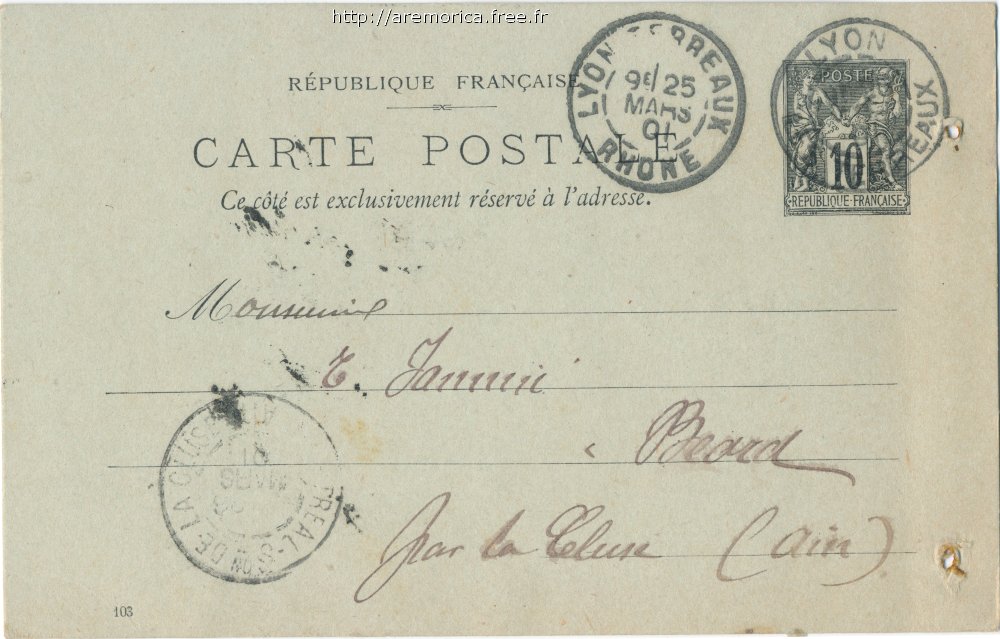 http://aremorica.free.fr
RÉPUBLIQUE FRANÇAISE
CARTE POSTALE
Ce côté est exclusivement réservé à l'adresse.
LYON TERREAUX
9E 25
MARS
01
RHÔNE
LYON
TERREAUX
POSTE
10
RÉPUBLIQUE FRANÇAISE
Monsieur
à Beard
par la Cluse (Ain)
DE LA CLUSE
MARS
01
103